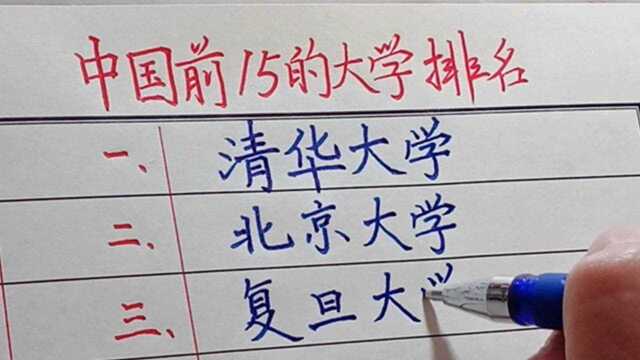 中国前15的大学排名
一、清华大学
二、北京大学
三、复旦大